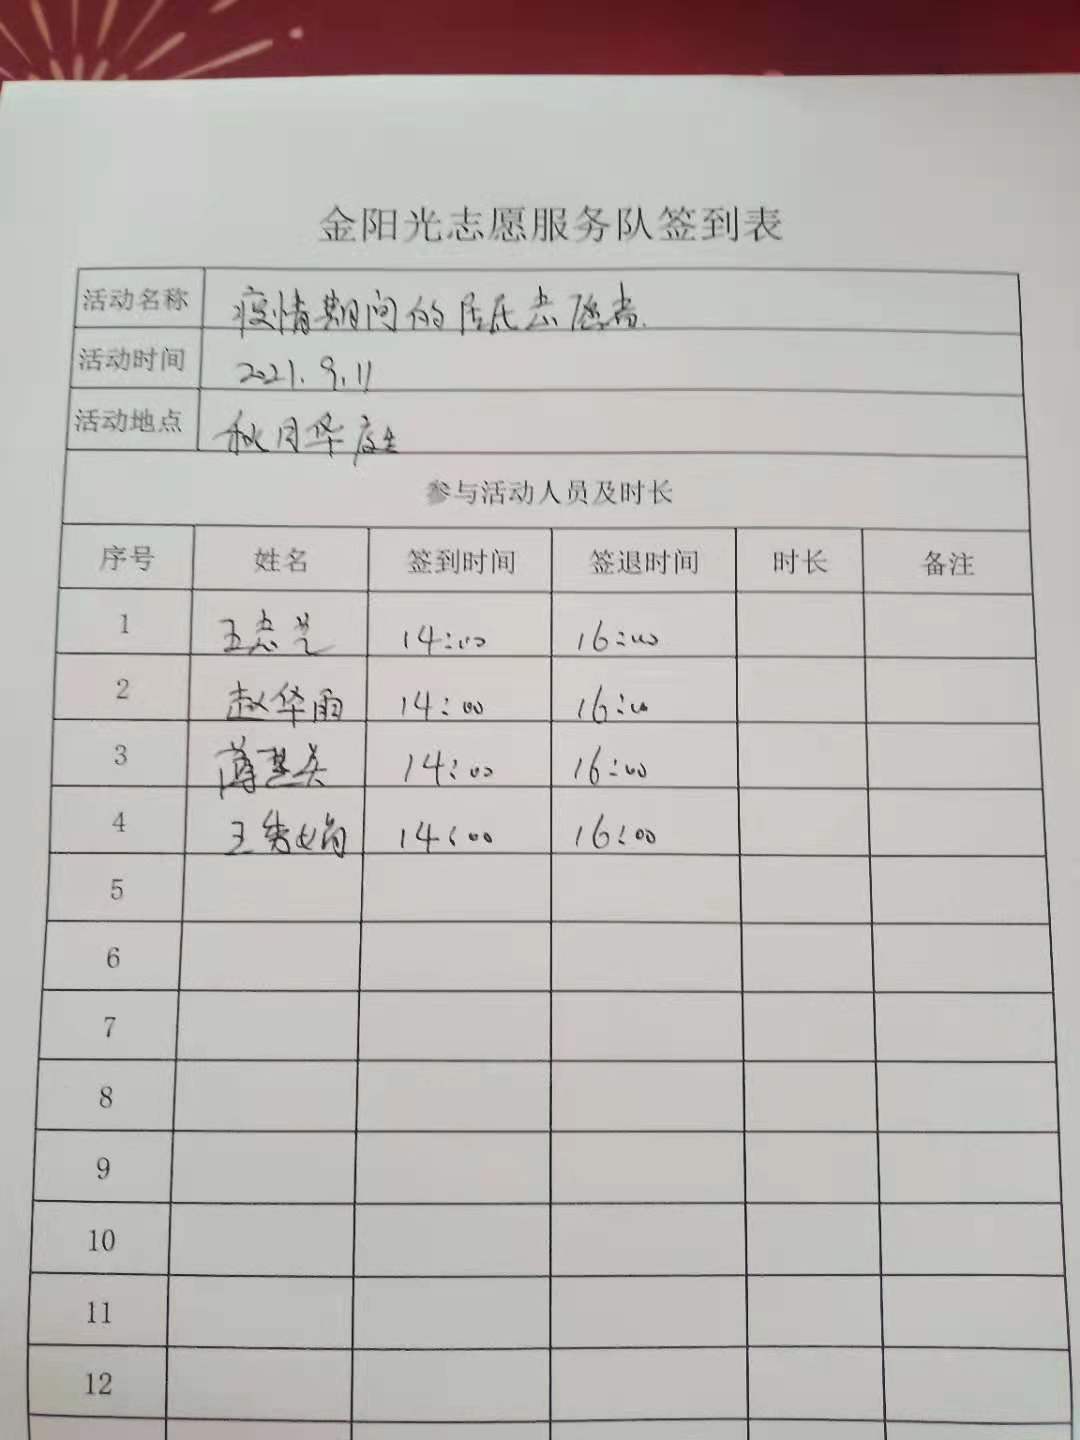 金阳光志愿服务队签到表
活动名称 疫情期间的居民志愿者.
活动时间 2021.9.11
活动地点 秋月华庭
参与活动人员及时长
序号 姓名 签到时间 签退时间 时长 备注
1 王志兰 14:00 16:00
2 赵华雨 14:00 16:00
3 14:00 16:00
4 王秀娟 14:00 16:00
5
6
7
8
9
10
11
12